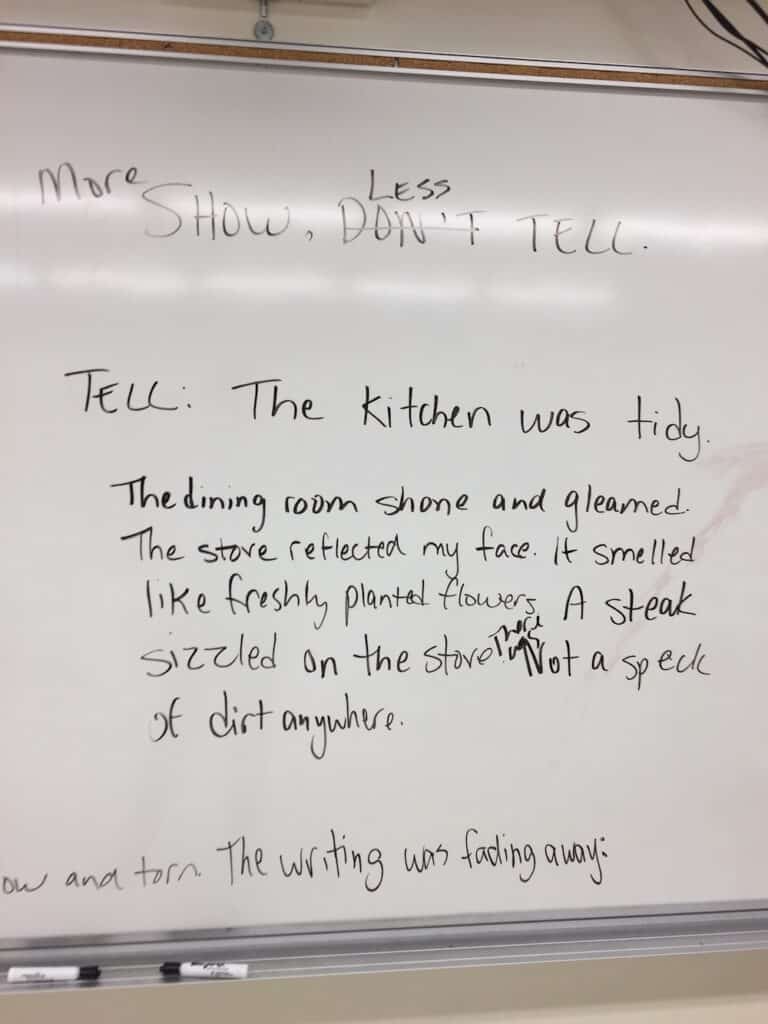 More SHOW, DON'T LESS TELL.
TELL: The kitchen was tidy.
The dining room shone and gleamed.
The stove reflected my face. It smelled
like freshly planted flowers. A steak
sizzled on the stove. There was Not a speck
of dirt anywhere.
ow and torn. The writing was fading away.